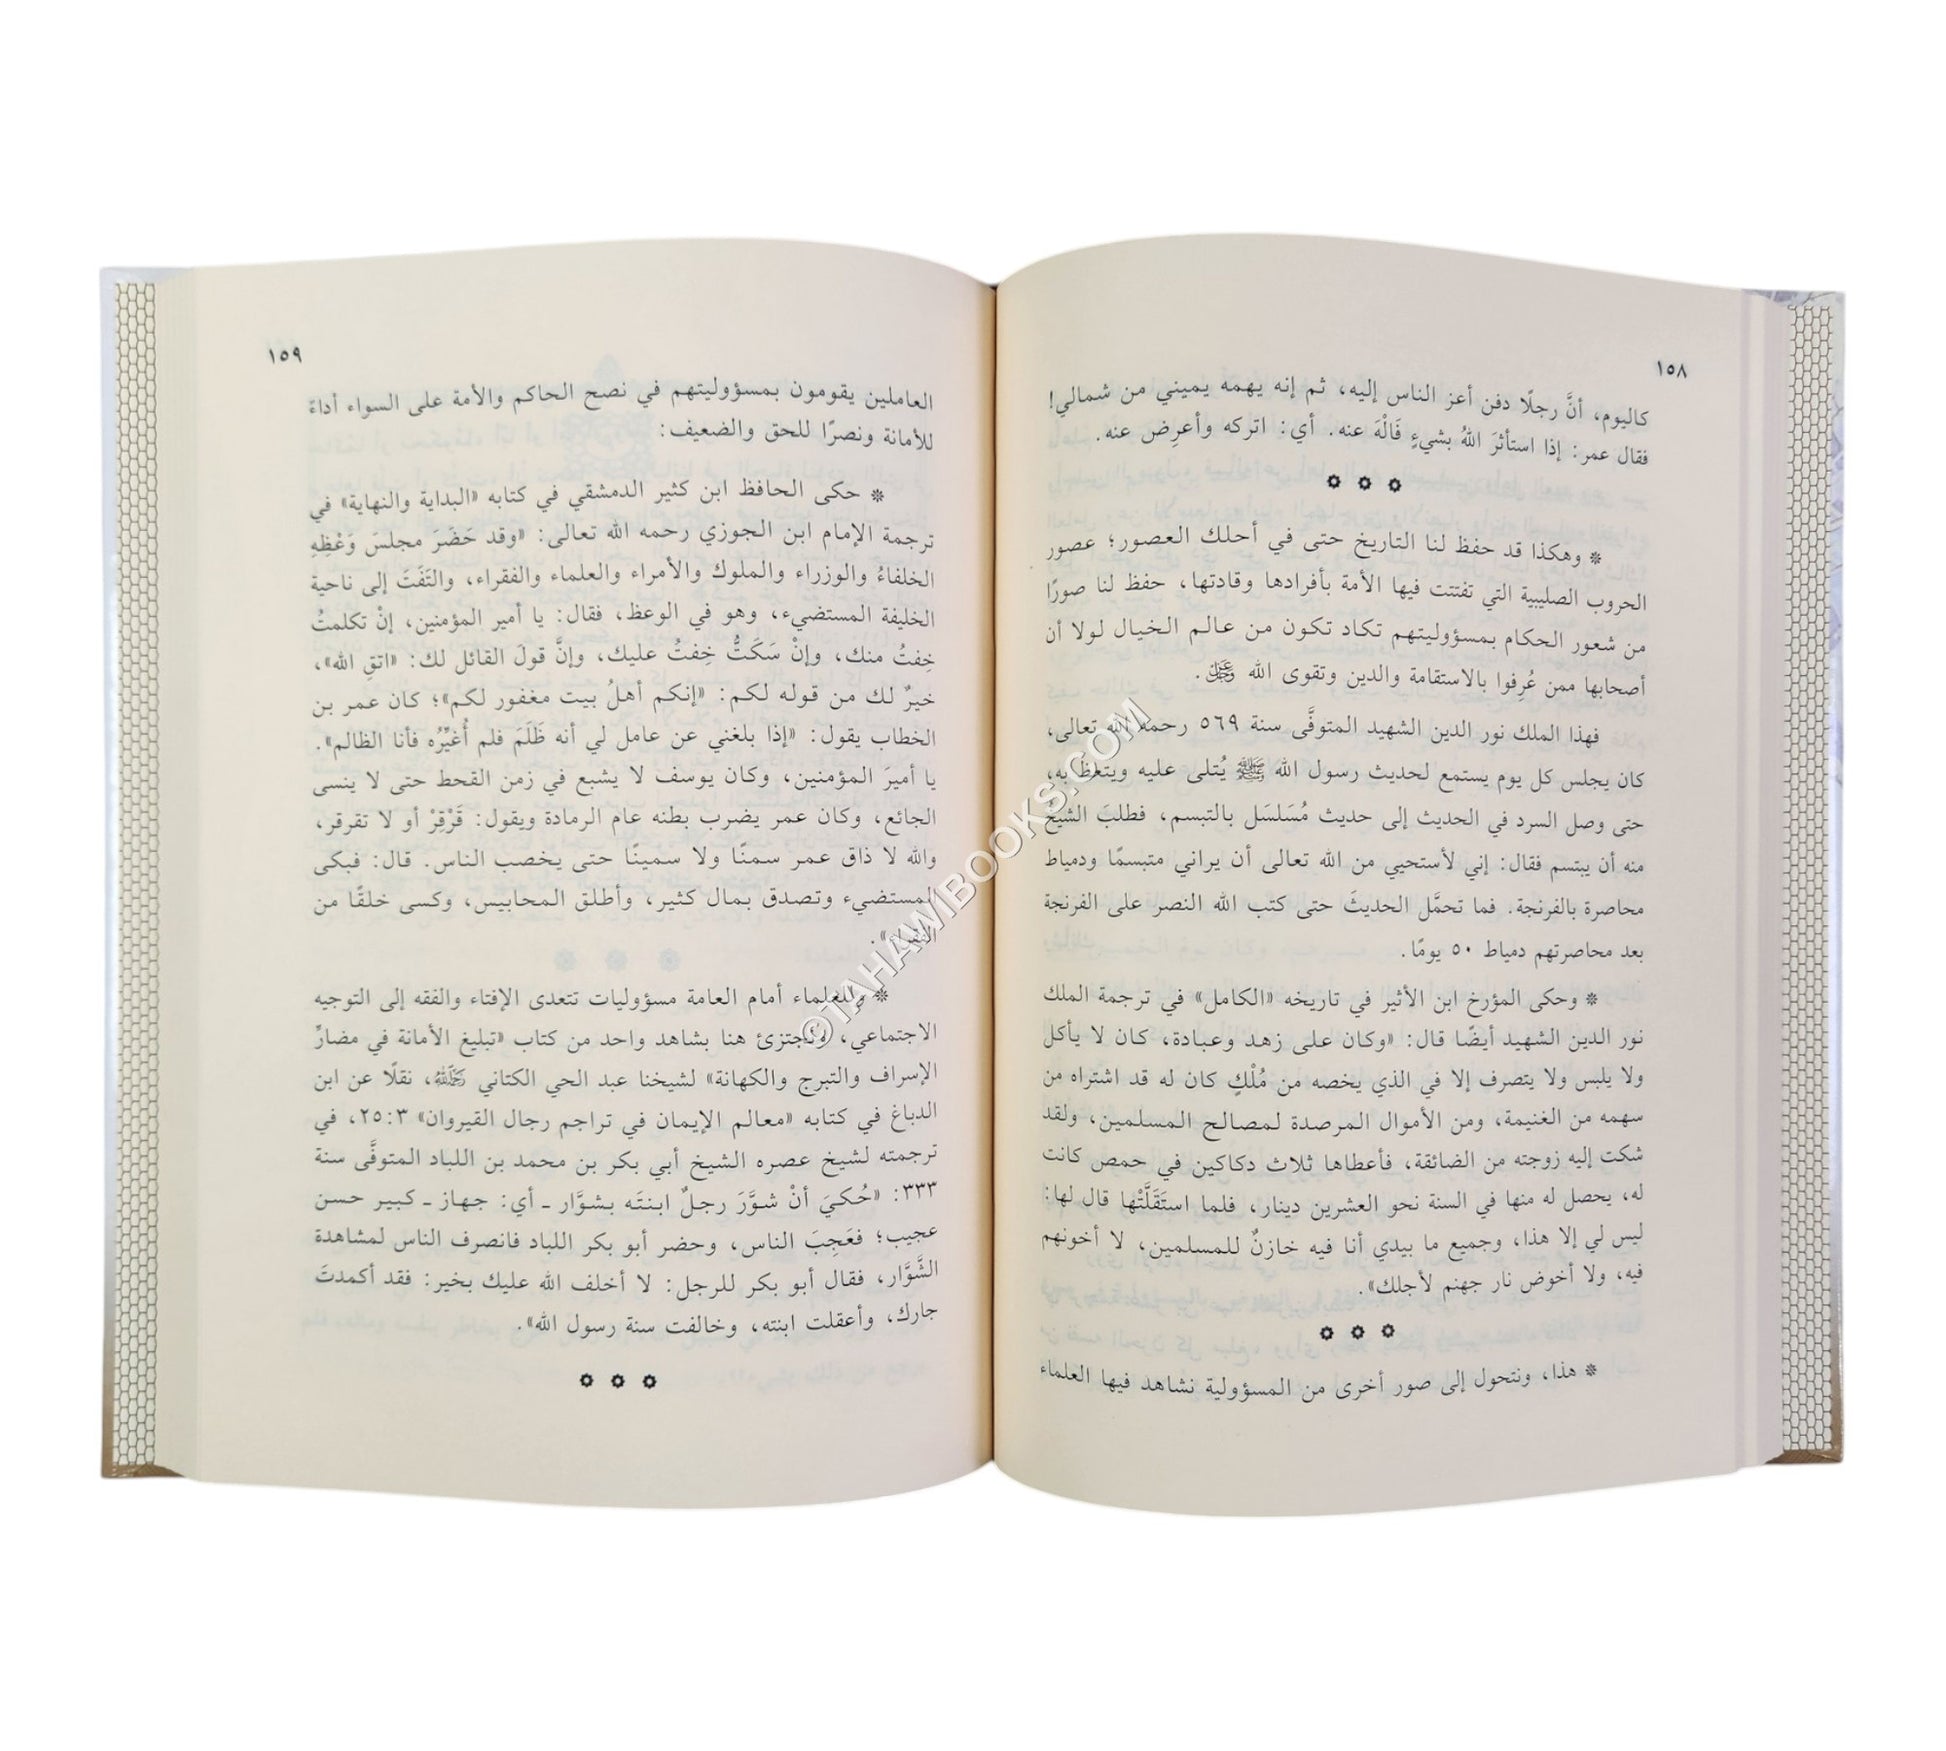 ١٥٨
كاليوم، أنَّ رجلًا دفن أعز الناس إليه، ثم إنه يهمه يميني من شمالي!
فقال عمر: إذا استأثرَ اللهُ بشيءٍ فَالْهَ عنه. أي: اتركه وأعرِض عنه.
* وهكذا قد حفظ لنا التاريخ حتى في أحلك العصور؛ عصور
الحروب الصليبية التي تفتتت فيها الأمة بأفرادها وقادتها، حفظ لنا صورًا
من شعور الحكام بمسؤوليتهم تكاد تكون من عالم الخيال لولا أن
أصحابها ممن عُرِفوا بالاستقامة والدين وتقوى الله ﷿.
فهذا الملك نور الدين الشهيد المتوفَّى سنة ٥٦٩ رحمه الله تعالى،
كان يجلس كل يوم يستمع لحديث رسول الله ﷺ يُتلى عليه ويتعظ به،
حتى وصل السرد في الحديث إلى حديث مُسَلسَل بالتبسم، فطلبَ الشيخ
منه أن يبتسم فقال: إني لأستحيي من الله تعالى أن يراني متبسمًا ودمياط
محاصرة بالفرنجة. فما تحمَّل الحديثَ حتى كتب الله النصر على الفرنجة
بعد محاصرتهم دمياط ٥٠ يومًا.
* وحكى المؤرخ ابن الأثير في تاريخه «الكامل» في ترجمة الملك
نور الدين الشهيد أيضًا قال: «وكان على زهد وعبادة، كان لا يأكل
ولا يلبس ولا يتصرف إلا في الذي يخصه من مُلْكٍ كان له قد اشتراه من
سهمه من الغنيمة، ومن الأموال المرصدة لمصالح المسلمين، ولقد
شكت إليه زوجته من الضائقة، فأعطاها ثلاث دكاكين في حمص كانت
له، يحصل له منها في السنة نحو العشرين دينار، فلما استَقَلَّتْها قال لها:
ليس لي إلا هذا، وجميع ما بيدي أنا فيه خازنٌ للمسلمين، لا أخونهم
فيه، ولا أخوض نار جهنم لأجلك».
* هذا، ونتحول إلى صور أخرى من المسؤولية نشاهد فيها العلماء
١٥٩
العاملين يقومون بمسؤوليتهم في نصح الحاكم والأمة على السواء أداءً
للأمانة ونصرًا للحق والضعيف:
* حكى الحافظ ابن كثير الدمشقي في كتابه «البداية والنهاية» في
ترجمة الإمام ابن الجوزي رحمه الله تعالى: «وقد حَضَرَ مجلسَ وَعْظِهِ
الخلفاءُ والوزراء والملوك والأمراء والعلماء والفقراء، والتَفَتَ إلى ناحية
الخليفة المستضيء، وهو في الوعظ، فقال: يا أمير المؤمنين، إنْ تكلمتُ
خِفتُ منك، وإنْ سَكَتُّ خِفتُ عليك، وإنَّ قولَ القائل لك: «اتقِ الله»،
خيرٌ لك من قوله لكم: «إنكم أهلُ بيت مغفور لكم»؛ كان عمر بن
الخطاب يقول: «إذا بلغني عن عامل لي أنه ظَلَمَ فلم أُغيِّرُه فأنا الظالم».
يا أميرَ المؤمنين، وكان يوسف لا يشبع في زمن القحط حتى لا ينسى
الجائع، وكان عمر يضرب بطنه عام الرمادة ويقول: قَرْقِرْ أو لا تقرقر،
والله لا ذاق عمر سمنًا ولا سمينًا حتى يخصب الناس. قال: فبكى
المستضيء وتصدق بمال كثير، وأطلق المحابيس، وكسى خلقًا من
الفقراء».
* وللعلماء أمام العامة مسؤوليات تتعدى الإفتاء والفقه إلى التوجيه
الاجتماعي، فأجتزئ هنا بشاهد واحد من كتاب «تبليغ الأمانة في مضارِّ
الإسراف والتبرج والكهانة» لشيخنا عبد الحي الكتاني رحمه الله، نقلًا عن ابن
الدباغ في كتابه «معالم الإيمان في تراجم رجال القيروان» ٢٥:٣، في
ترجمته لشيخ عصره الشيخ أبي بكر بن محمد بن اللباد المتوفَّى سنة
٣٣٣: «حُكيَ أنْ شوَّرَ رجلٌ ابنتَه بشوَّار ـ أي: جهاز ـ كبير حسن
عجيب؛ فعَجِبَ الناس، وحضر أبو بكر اللباد فانصرف الناس لمشاهدة
الشَّوَّار، فقال أبو بكر للرجل: لا أخلف الله عليك بخير: فقد أكمدتَ
جارك، وأعقلت ابنته، وخالفت سنة رسول الله».
©TAHAWIBOOKS.COM